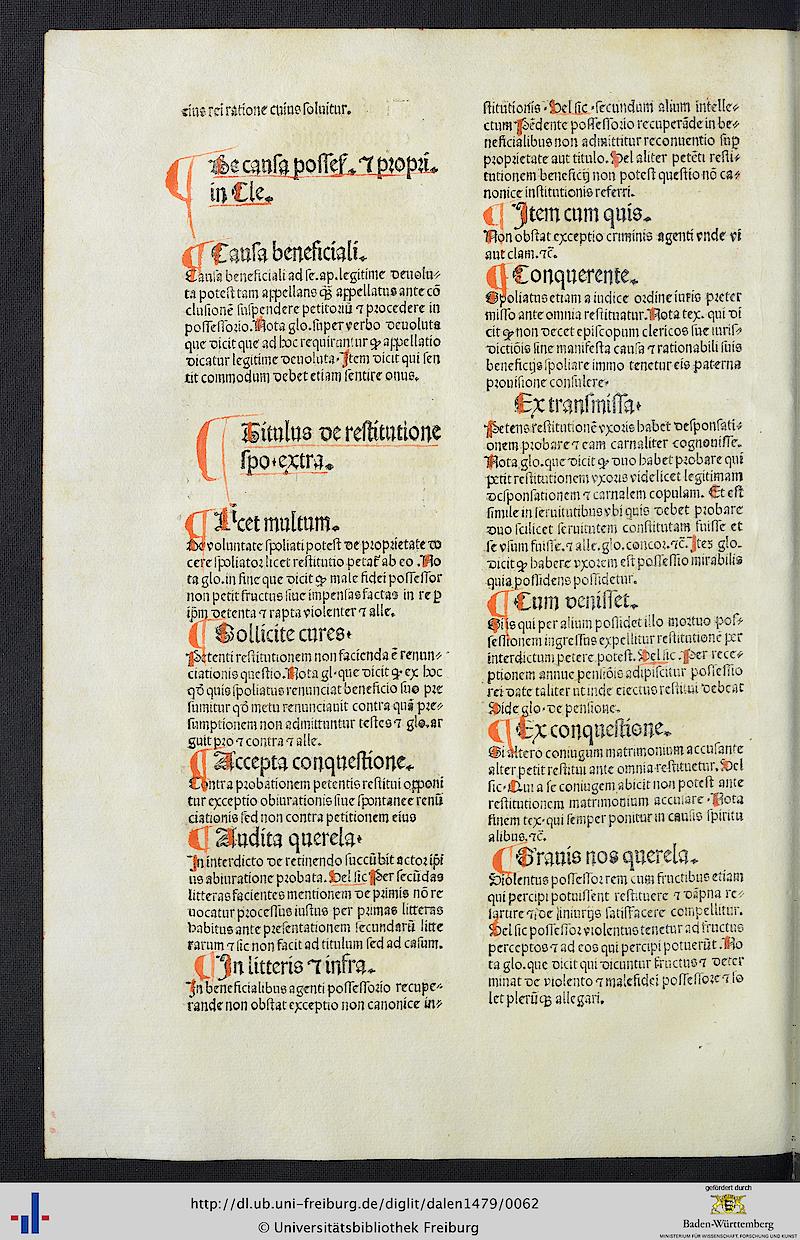 eius rei ratione cuius soluitur.
¶ De causa possess. ⁊ propri.
in Cle.
¶ Causa beneficiali.
Causa beneficiali ad se. ap. legitime deuolu⸗
ta potest tam appellans qȝ appellatus ante cō
clusionē suspendere petitoriū ⁊ procedere in
possessorio. Nota glo. super verbo deuoluta
que dicit que ad hoc requirantur ꝙ appellatio
dicatur legitime deuoluta. Item dicit qui sen
tit commodum debet etiam sentire onus.
¶ Titulus de restitutione
spo. extra.
¶ Licet multum.
De voluntate spoliati potest de proprietate do
cere spoliator licet restitutio petat᷑ ab eo. No
ta glo. in fine que dicit ꝙ male fidei possessor
non petit fructus siue impensas factas in re ꝑ
ip̄m detenta ⁊ rapta violenter ⁊ alle.
¶ Sollicite cures.
Petenti restitutionem non facienda ē renun⸗
ciationis questio. Nota gl. que dicit ꝙ ex hoc
qđ quis spoliatus renunciat beneficio suo pre
sumitur qđ metu renunciauit contra quā pre⸗
sumptionem non admittuntur testes ⁊ glo. ar
guit pro ⁊ contra ⁊ alle.
¶ Accepta conquestione.
Contra probationem petentis restitui opponi
tur exceptio obiurationis siue spontanee renū
ciationis sed non contra petitionem eius
¶ Audita querela.
In interdicto de retinendo succūbit actor ip̄i
us abiuratione probata. Vel sic Per secūdas
litteras facientes mentionem de primis nō re
uocatur processus iustus per primas litteras
habitus ante presentationem secundarū litte
rarum ⁊ sic non facit ad titulum sed ad casum.
¶ In litteris ⁊ infra.
In beneficialibus agenti possessorio recupe⸗
rande non obstat exceptio non canonice in⸗
stitutionis. Vel sic. secundum alium intelle⸗
ctum Pēdente possessorio recuperāde in be⸗
neficialibus non admittitur reconuentio suꝑ
proprietate aut titulo. Vel aliter petēti resti⸗
tutionem beneficij non potest questio nō ca⸗
nonice institutionis referri.
¶ Item cum quis.
Non obstat exceptio criminis agenti vnde vi
aut clam. ⁊c̄.
¶ Conquerente.
Spoliatus etiam a iudice ordine iuris preter
misso ante omnia restituatur. Nota tex. qui di
cit ꝙ non decet episcopum clericos sue iuris⸗
dictiōis sine manifesta causa ⁊ rationabili suis
beneficijs spoliare immo tenetur eis paterna
prouisione consulere.
Ex transmissa.
Petens restitutionē vxoris habet desponsati⸗
onem probare ⁊ eam carnaliter cognouisse.
Nota glo. que dicit ꝙ duo habet probare qui
petit restitutionem vxoris videlicet legitimam
desponsationem ⁊ carnalem copulam. Et est
simile in seruitutibus vbi quis debet probare
duo scilicet seruitutem constitutam fuisse et
se vsum fuisse. ⁊ alle. glo. concor. ⁊c̄. Iteȝ glo.
dicit ꝙ habere vxorem est possessio mirabilis
quia possidens possidetur.
¶ Cum venisset.
Si is qui per alium possidet illo mortuo pos⸗
sessionem ingressus expellitur restitutionē per
interdictum petere potest. Vel sic. Per rece⸗
ptionem annue pensiōis adipiscitur possessio
rei date taliter ut inde eiectus restitui debeat
Vide glo. de pensione.
¶ Ex conquestione.
Si altero coniugum matrimonium accusante
alter petit restitui ante omnia restituetur. Vel
sic. Qui a se coniugem abicit non potest ante
restitutionem matrimonium accusare. Nota
finem tex. qui semper ponitur in causis spiritu
alibus. ⁊c̄.
¶ Grauis nos querela.
Violentus possessor rem cum fructibus etiam
qui percipi potuissent restituere ⁊ dāpna re⸗
sarcire ⁊ de iniurijs satisfacere compellitur.
Vel sic possessor violentus tenetur ad fructus
perceptos ⁊ ad eos qui percipi potuerūt. No
ta glo. que dicit qui dicuntur fructus ⁊ deter
minat de violento ⁊ malefidei possessore ⁊ so
let plerūqȝ allegari.
http://dl.ub.uni-freiburg.de/diglit/dalen1479/0062
© Universitätsbibliothek Freiburg
gefördert durch
Baden-Württemberg
MINISTERIUM FÜR WISSENSCHAFT, FORSCHUNG UND KUNST